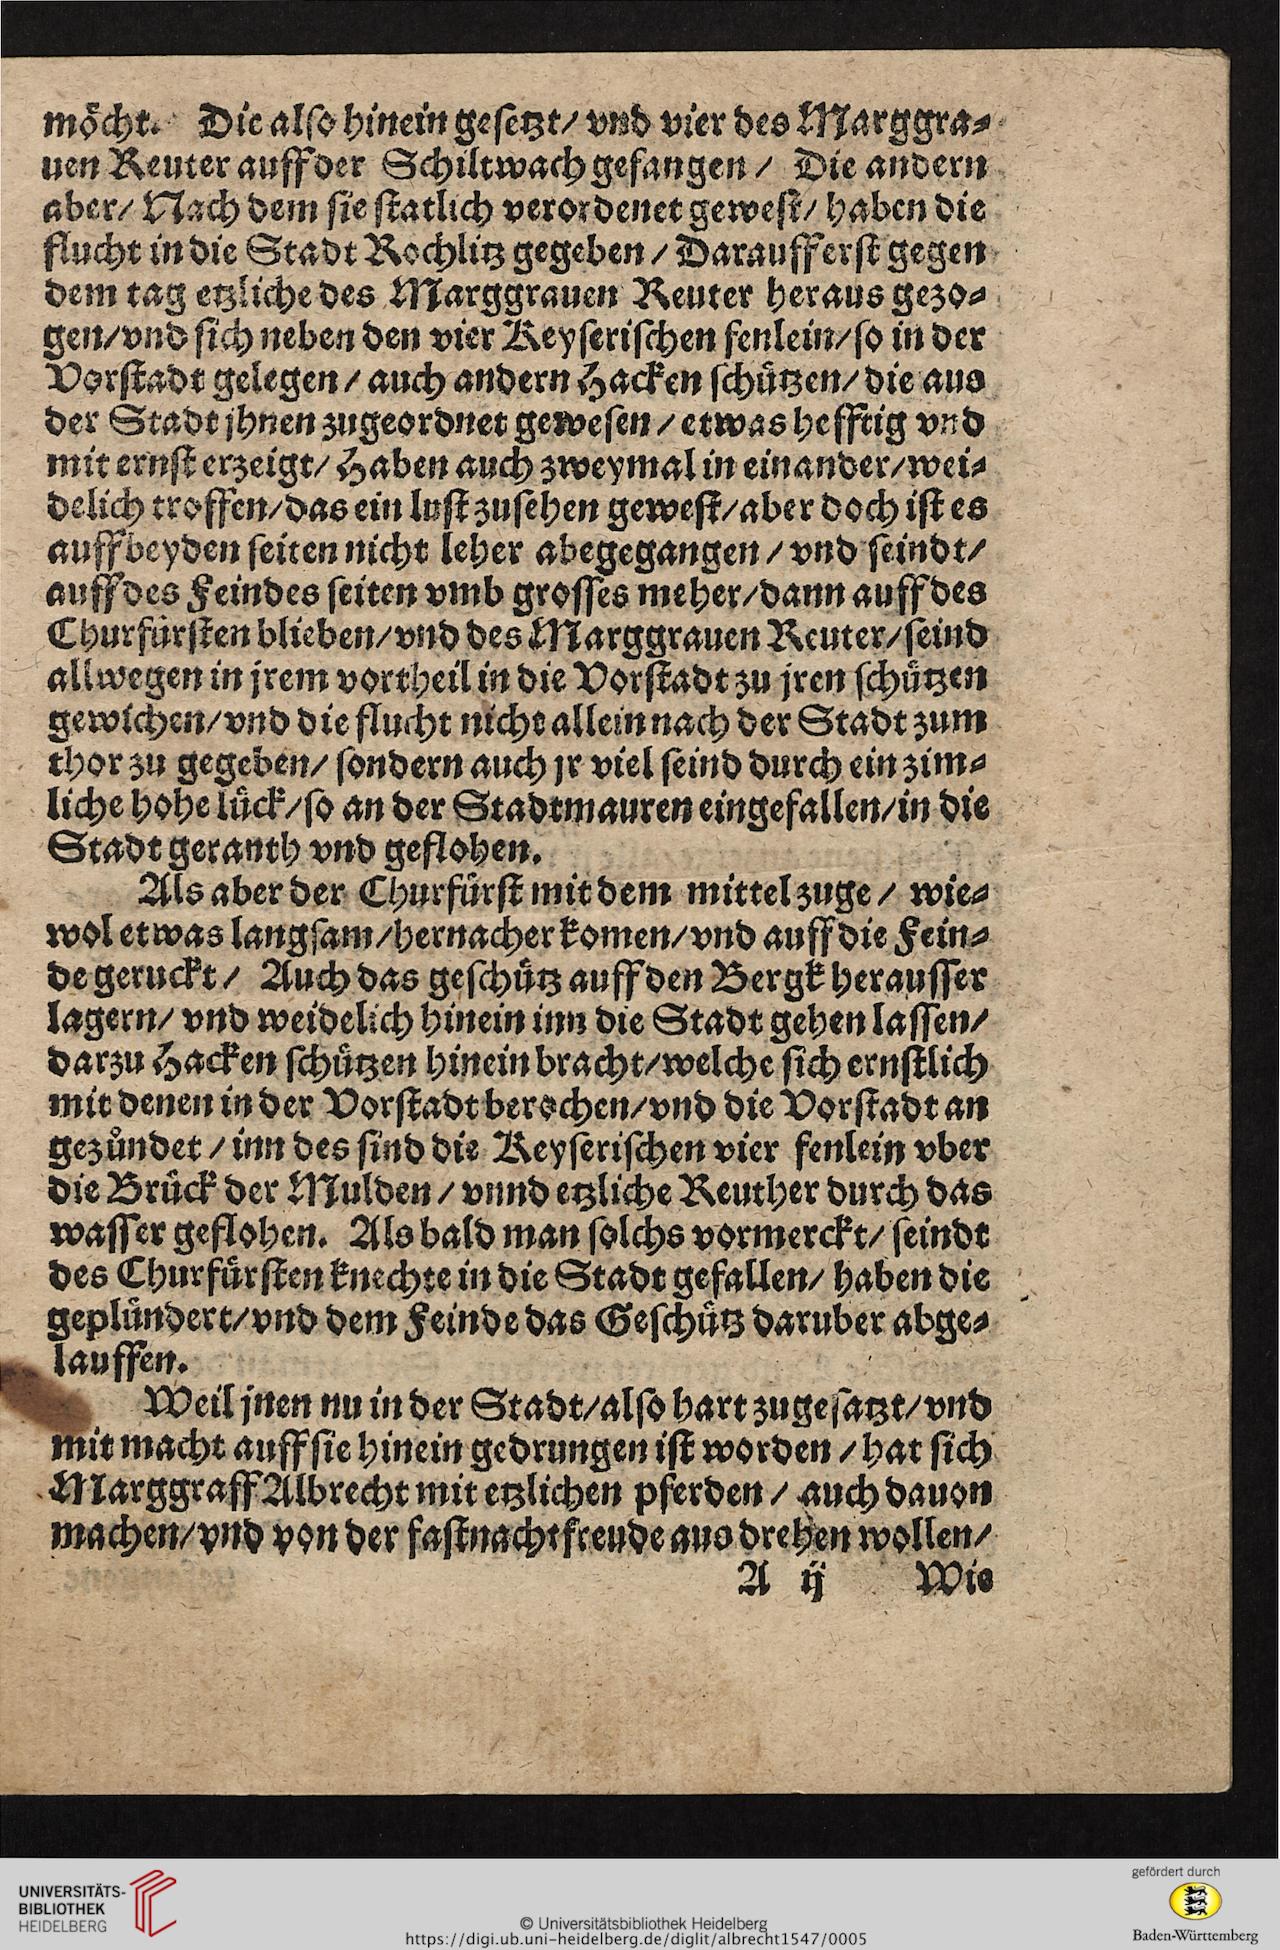 möcht. Die also hinein gesetzt/ vnd vier des Marggra⸗
uen Reuter auff der Schiltwach gefangen / Die andern
aber/ Nach dem sie statlich verordenet gewest/ haben die
flucht in die Stadt Rochlitz gegeben / Darauff erst gegen
dem tag etzliche des Marggrauen Reuter heraus gezo⸗
gen/vnd sich neben den vier Keyserischen fenlein/so in der
Vorstadt gelegen / auch andern Hacken schützen/ die aus
der Stadt jhnen zugeordnet gewesen / etwas hefftig vnd
mit ernst erzeigt/ Haben auch zweymal in einander/wei⸗
delich troffen/das ein lust zusehen gewest/aber doch ist es
auff beyden seiten nicht leher abegegangen / vnd seindt/
auff des Feindes seiten vmb grosses meher/dann auff des
Churfürsten blieben/vnd des Marggrauen Reuter/seind
allwegen in jrem vortheil in die Vorstadt zu jren schützen
gewichen/vnd die flucht nicht allein nach der Stadt zum
thor zu gegeben/ sondern auch jr viel seind durch ein zim⸗
liche hohe lück/so an der Stadtmauren eingefallen/in die
Stadt geranth vnd geflohen.
Als aber der Churfürst mit dem mittel zuge / wie⸗
wol etwas langsam/hernacher komen/vnd auff die Fein⸗
de geruckt / Auch das geschütz auff den Bergk herausser
lagern/ vnd weidelich hinein inn die Stadt gehen lassen/
darzu Hacken schützen hinein bracht/welche sich ernstlich
mit denen in der Vorstadt berochen/vnd die Vorstadt an
gezündet / inn des sind die Keyserischen vier fenlein vber
die Brück der Mulden / vnnd etzliche Reuther durch das
wasser geflohen. Als bald man solchs vormerckt/ seindt
des Churfürsten knechte in die Stadt gefallen/ haben die
geplündert/vnd dem Feinde das Geschütz daruber abge⸗
lauffen.
Weil jnen nu in der Stadt/also hart zugesatzt/vnd
mit macht auff sie hinein gedrungen ist worden / hat sich
Marggraff Albrecht mit etzlichen pferden / auch dauon
machen/vnd von der fastnachtfreude aus drehen wollen/
A ij Wie
UNIVERSITÄTS-
BIBLIOTHEK
HEIDELBERG
© Universitätsbibliothek Heidelberg
https://digi.ub.uni-heidelberg.de/diglit/albrecht1547/0005
gefördert durch
Baden-Württemberg